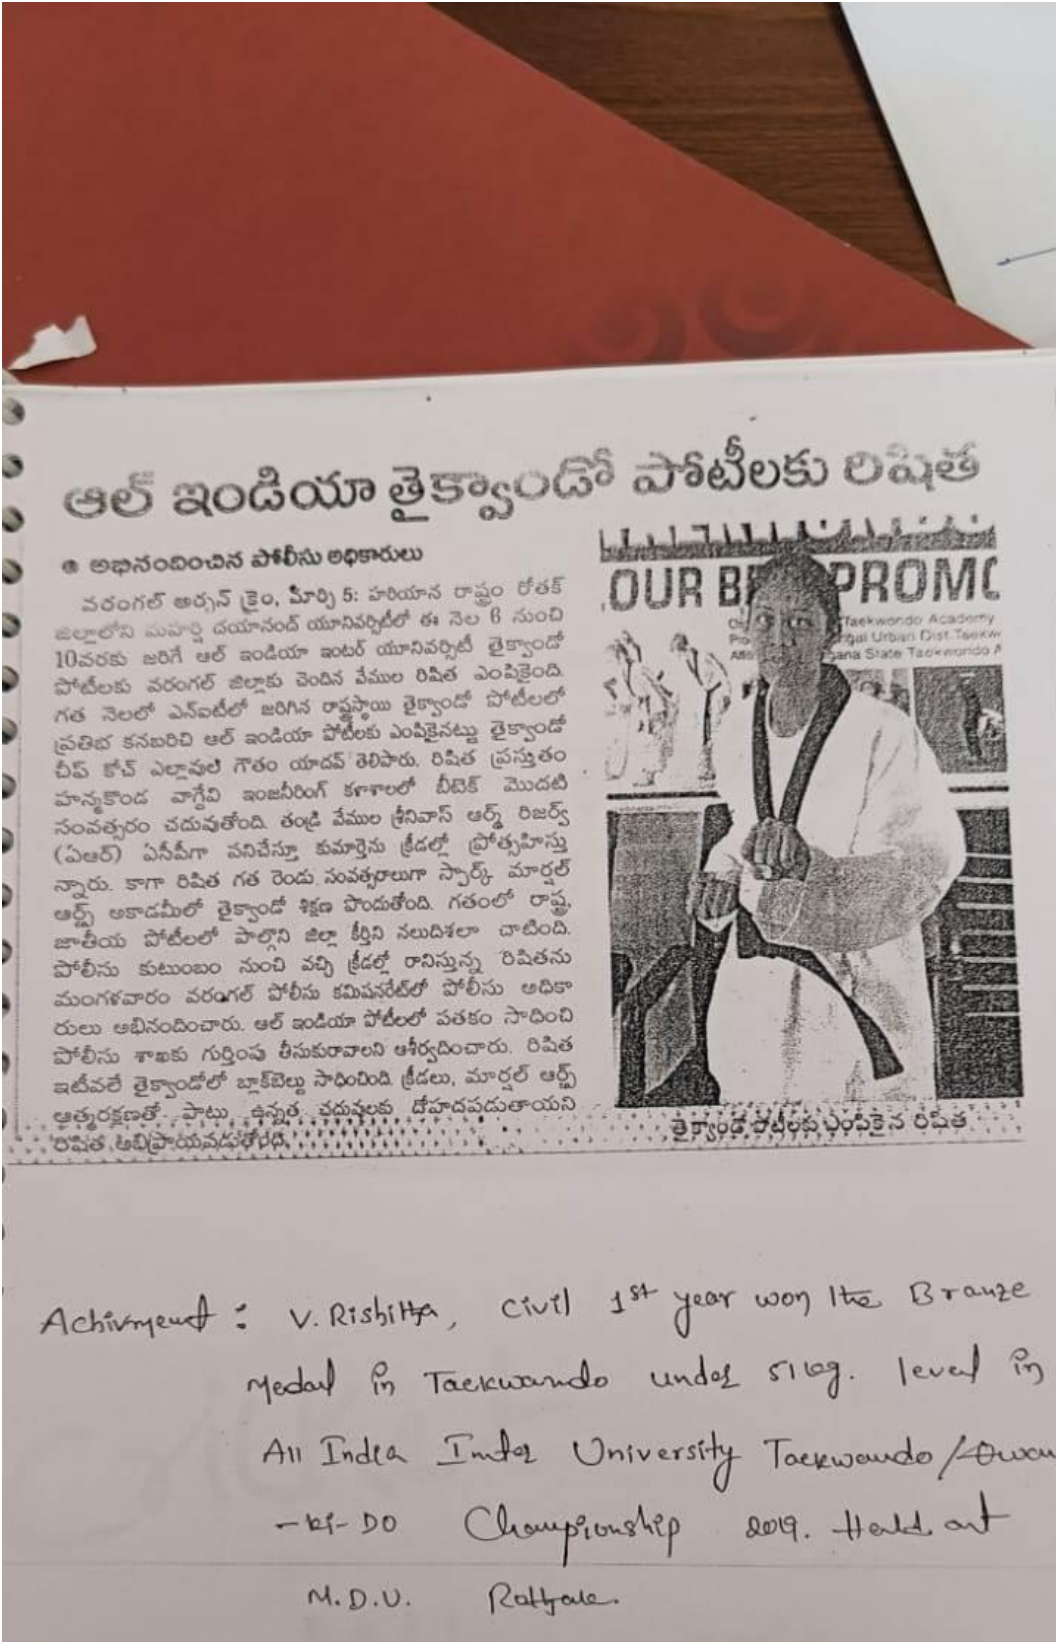 ఆల్ ఇండియా తైక్వాండో పోటీలకు రిషిత
అభినందించిన పోలీసు అధికారులు
వరంగల్ అర్బన్ క్రైం, మార్చి 5: హరియాన రాష్ట్రం రోతక్
జిల్లాలోని మహర్షి దయానంద్ యూనివర్సిటీలో ఈ నెల 6 నుంచి
10వరకు జరిగే ఆల్ ఇండియా ఇంటర్ యూనివర్సిటీ తైక్వాండో
పోటీలకు వరంగల్ జిల్లాకు చెందిన వేముల రిషిత ఎంపికైంది.
గత నెలలో ఎన్ఐటీలో జరిగిన రాష్ట్రస్థాయి తైక్వాండో పోటీలలో
ప్రతిభ కనబరిచి ఆల్ ఇండియా పోటీలకు ఎంపికైనట్టు తైక్వాండో
చీఫ్ కోచ్ ఎల్లావుల గౌతం యాదవ్ తెలిపారు. రిషిత ప్రస్తుతం
హన్మకొండ వాగ్దేవి ఇంజనీరింగ్ కళాశాలలో బీటెక్ మొదటి
సంవత్సరం చదువుతోంది. తండ్రి వేముల శ్రీనివాస్ ఆర్మ్ రిజర్వ్
(ఏఆర్) ఏసీపీగా పనిచేస్తూ కుమార్తెను క్రీడల్లో ప్రోత్సహిస్తు
న్నారు. కాగా రిషిత గత రెండు సంవత్సరాలుగా స్పార్క్ మార్షల్
ఆర్ట్స్ అకాడమీలో తైక్వాండో శిక్షణ పొందుతోంది. గతంలో రాష్ట్ర,
జాతీయ పోటీలలో పాల్గొని జిల్లా కీర్తిని నలుదిశలా చాటింది.
పోలీసు కుటుంబం నుంచి వచ్చి క్రీడల్లో రానిస్తున్న రిషితను
మంగళవారం వరంగల్ పోలీసు కమిషనరేట్‌లో పోలీసు అధికా
రులు అభినందించారు. ఆల్ ఇండియా పోటీలలో పతకం సాధించి
పోలీసు శాఖకు గుర్తింపు తీసుకురావాలని ఆశీర్వదించారు. రిషిత
ఇటీవలే తైక్వాండోలో బ్లాక్‌బెల్టు సాధించింది. క్రీడలు, మార్షల్ ఆర్ట్స్
ఆత్మరక్షణతో పాటు ఉన్నత చదువులకు దోహదపడుతాయని
రిషిత అభిప్రాయపడుతోంది.
OUR B PROMO
Taekwondo Academy
gal Urban Dist. Taekw
ana State Taekwondo A
తైక్వాండో పోటీలకు ఎంపికైన రిషిత
Achivment : V. Rishitta, civil 1st year won the Bronze
medal in Taekwando under 51 kg. level in
All India Inter University Taekwando /
-ki-DO Championship 2019. Held at
M.D.U.